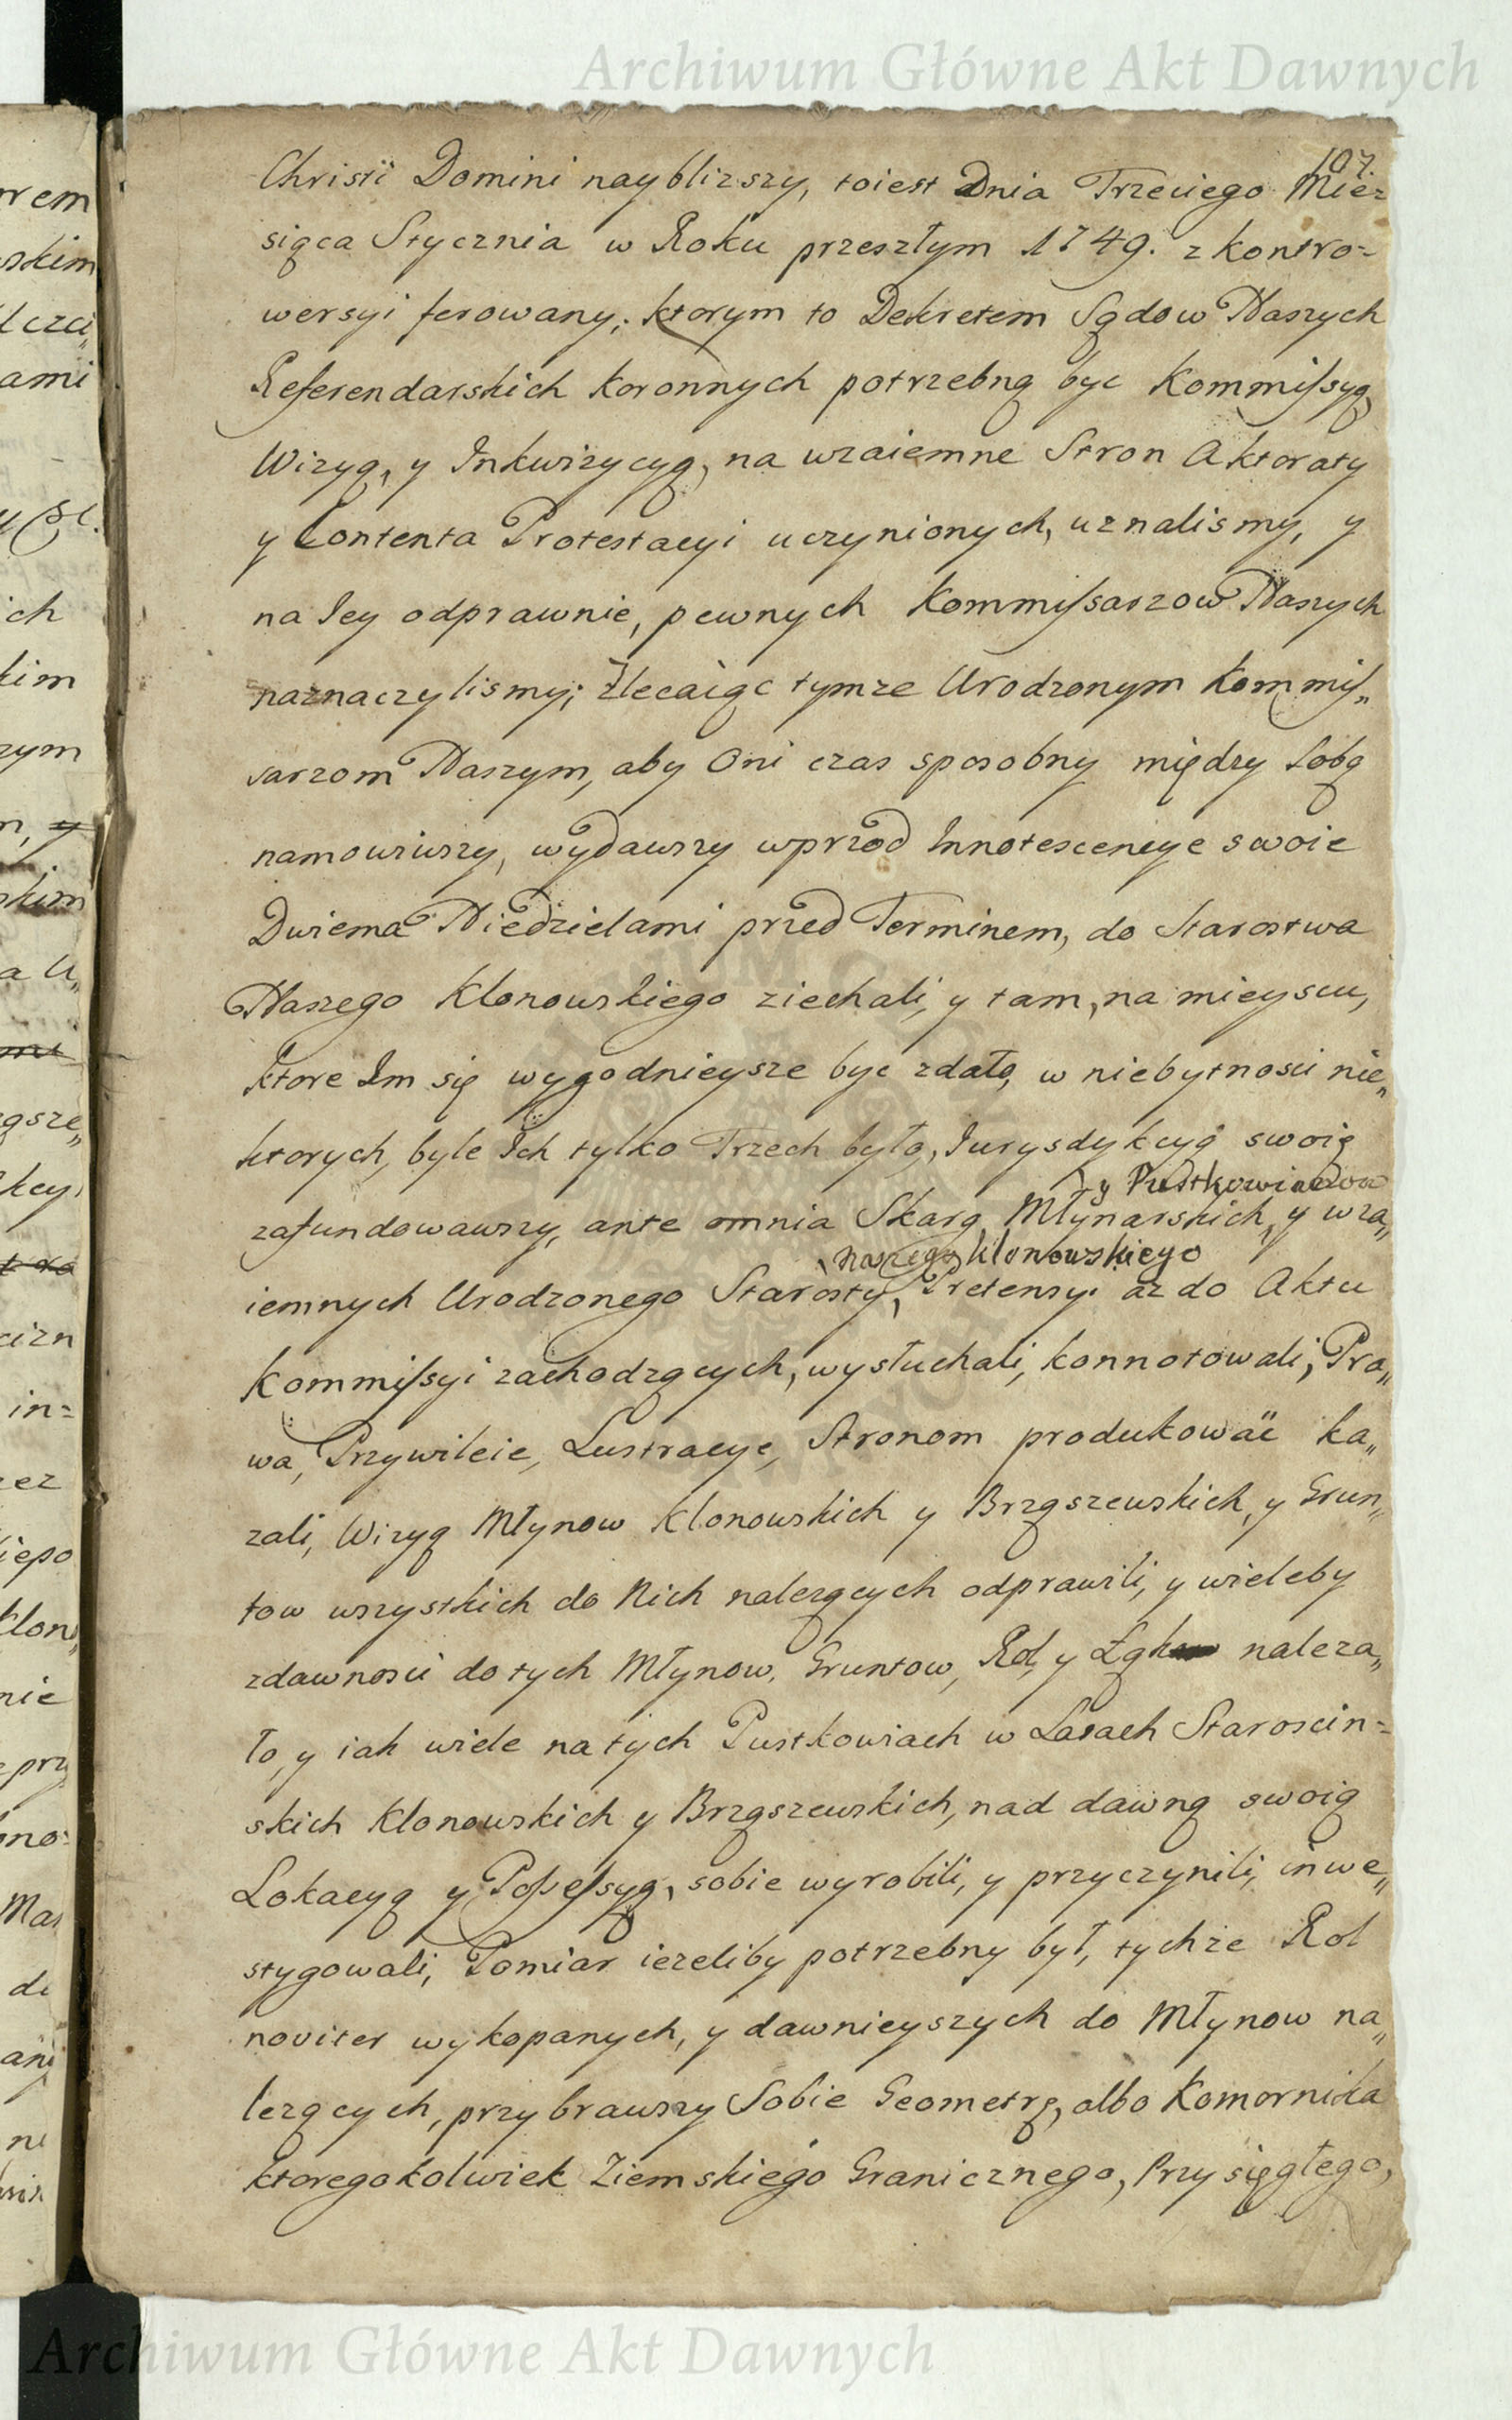 Archiwum Główne Akt Dawnych
107.
Christi Domini nayblizszy, toiest Dnia Trzeciego Mie=
siąca Stycznia w Roku przeszłym 1749. z kontro=
wersyi ferowany; ktorym to Dekretem Sądow Naszych
Referendarskich Koronnych potrzebną byc Kommissyą,
Wizyą, y Inkwizycyą, na wzaiemne Stron Aktoraty
y Contenta Protestacyi uczynionych, uznalismy, y
na Iey odprawnie, pewnych Kommissarzow Naszych
naznaczylismy; Zlecaiąc tymze Urodzonym Kommis„
sarzom Naszym, aby Oni czas sposobny między Sobą
namowiwszy, wydawszy wprzod Innotescencye swoie
Dwiema Niedzielami przed Terminem, do Starostwa
Naszego Klonowskiego ziechali, y tam, na mieyscu,
ktore Im się wygodnieysze byc zdało, w niebytnosci nie„
ktorych, byle Ich tylko Trzech było, Iurysdykcyą swoię
y Pustkowiaków
zafundowawszy, ante omnia Skarg Młynarskich, y wza„
Naszego Klonowskiego
iemnych Urodzonego Starosty, Pretensyi az do Aktu
Kommissyi zachodzących, wysłuchali, konnotowali, Pra„
wa, Przywileie, Lustracye, Stronom produkowac ka„
zali, Wizyą Młynow Klonowskich y Brząszewskich, y Grun„
tow wszystkich do Nich nalezących odprawili, y wieleby
zdawnosci do tych Młynow, Gruntow, Rol, y Łąk naleza„
ło, y iak wiele na tych Pustkowiach w Lasach Staroscin=
skich Klonowskich y Brząszewskich, nad dawną swoią
Lokacyą y Possessyą, sobie wyrobili, y przyczynili, inwe„
stygowali, Pomiar iezeliby potrzebny był, tychze Rol
noviter wykopanych, y dawnieyszych do Młynow na„
lezących, przybrawszy Sobie Geometrę, albo Komornika
ktoregokolwiek Ziemskiego Granicznego, Przysięgłego,
Archiwum Główne Akt Dawnych